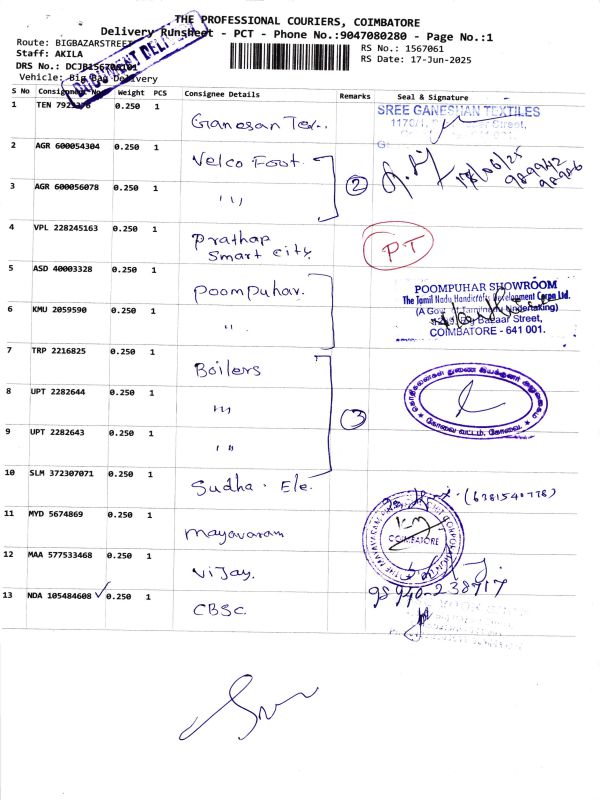 THE PROFESSIONAL COURIERS, COIMBATORE
Delivery Runsheet - PCT - Phone No.:9047080280 - Page No.:1
Route: BIGBAZARSTREET
RS No.: 1567061
Staff: AKILA
RS Date: 17-Jun-2025
DRS No.:
Vehicle: Big Bag Delivery
DOCUMENT DELIVERY
S No Consignment No Weight PCS Consignee Details Remarks Seal & Signature
1 TEN 0.250 1 Ganesan Tex..
SREE GANESHAN TEXTILES
2 AGR 600054304 0.250 1 Velco Foot.
17/06/25
3 AGR 600056078 0.250 1 " 2
4 VPL 228245163 0.250 1 Prathap
Smart City. PT
5 ASD 40003328 0.250 1 Poompuhar.
POOMPUHAR SHOWROOM
The Tamil Nadu Handicrafts Development Corpn Ltd.
(A Govt. of Tamilnadu Undertaking)
Big Bazaar Street,
COIMBATORE - 641 001.
6 KMU 2059590 0.250 1 "
7 TRP 2216825 0.250 1 Boilers
8 UPT 2282644 0.250 1 " 3
கோவை வட்டம், கோவை.
9 UPT 2282643 0.250 1 "
10 SLM 372307071 0.250 1 Sudha. Ele. (6381540778)
11 MYD 5674869 0.250 1 Mayavaram
COIMBATORE
12 MAA 577533468 0.250 1 Vijay.
98940-238917
13 NDA 105484608 0.250 1 CBSC.